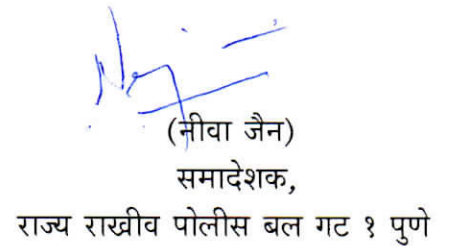 (नीवा जैन)
समादेशक,
राज्य राखीव पोलीस बल गट १ पुणे